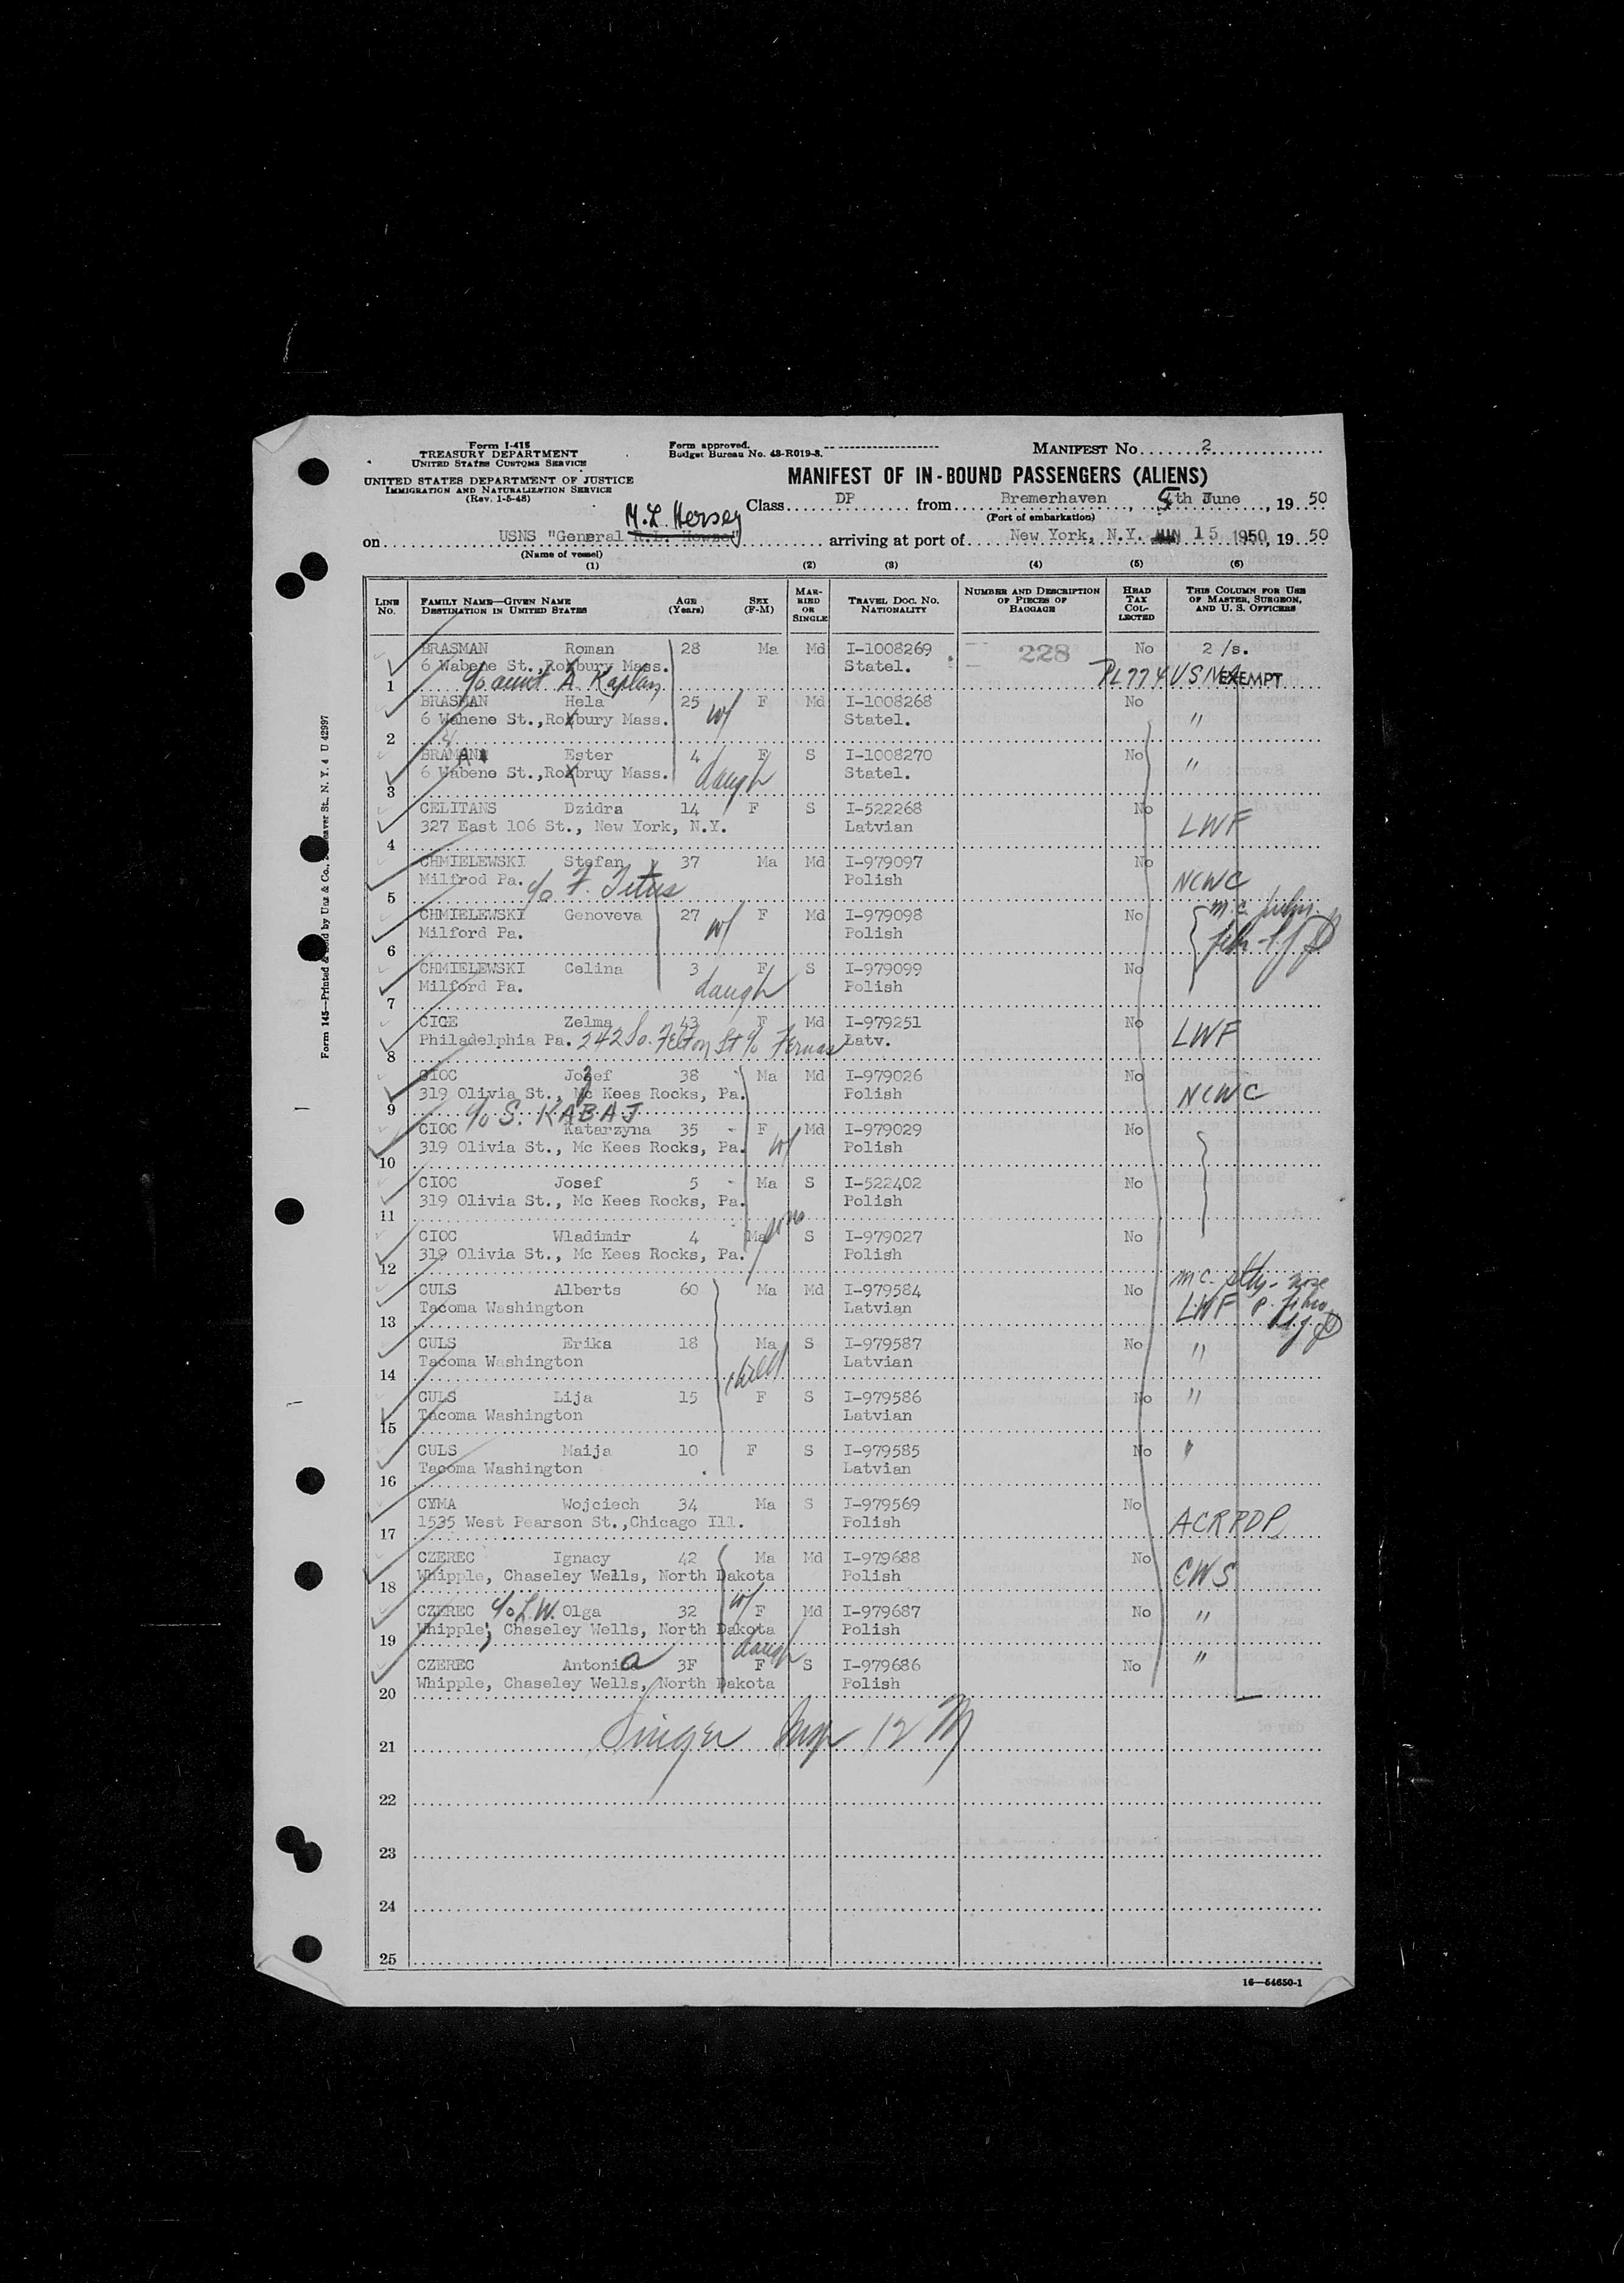 Form I-418
TREASURY DEPARTMENT
UNITED STATES CUSTOMS SERVICE
UNITED STATES DEPARTMENT OF JUSTICE
IMMIGRATION AND NATURALIZATION SERVICE
(Rev. 1-5-48)
Form approved.
Budget Bureau No. 43-R019-3.
MANIFEST No. 2
MANIFEST OF IN-BOUND PASSENGERS (ALIENS)
Class DP from Bremerhaven, 4th June, 19 50
(Port of embarkation)
M.L. Hersey
on USNS "General R.L. Howze" arriving at port of New York, N.Y. JUN 15 1950, 19 50
(Name of vessel)
(1) (2) (3) (4) (5) (6)
LINE No. FAMILY NAME—GIVEN NAME DESTINATION IN UNITED STATES AGE (Years) SEX (F-M) MARRIED OR SINGLE TRAVEL DOC. NO. NATIONALITY NUMBER AND DESCRIPTION OF PIECES OF BAGGAGE HEAD TAX COLLECTED THIS COLUMN FOR USE OF MASTER, SURGEON, AND U. S. OFFICERS
BRASMAN Roman 28 Ma Md I-1008269 228 No 2 /s.
6 Wabene St.,Roxbury Mass. Statel.
1 c/o aunt A Kaplan PL774 USNA EXEMPT
BRASMAN Hela 25 w/ F Md I-1008268 No
6 Wahene St.,Roxbury Mass. Statel. "
2
BRAMAN Ester 4 F S I-1008270 No
6 Wabene St.,Roxbruy Mass. daugh Statel. "
3
CELITANS Dzidra 14 F S I-522268 No
327 East 106 St., New York, N.Y. Latvian LWF
4
CHMIELEWSKI Stefan 37 Ma Md I-979097 No
Milfrod Pa. c/o F. Titus Polish NCWC
5
CHMIELEWSKI Genoveva 27 w/ F Md I-979098 No m.c.
Milford Pa. Polish
6
CHMIELEWSKI Celina 3 F S I-979099 No
Milford Pa. daugh Polish
7
CIGE Zelma 43 F Md I-979251 No
Philadelphia Pa. 242 So. Felton St c/o Latv. LWF
8
CIOC Jozef 38 Ma Md I-979026 No
319 Olivia St., Mc Kees Rocks, Pa. Polish NCWC
9 c/o S. KABAJ
CIOC Katarzyna 35 F Md I-979029 No
319 Olivia St., Mc Kees Rocks, Pa. w/ Polish
10
CIOC Josef 5 Ma S I-522402 No
319 Olivia St., Mc Kees Rocks, Pa. Polish
11 sons
CIOC Wladimir 4 Ma S I-979027 No
319 Olivia St., Mc Kees Rocks, Pa. Polish
12
CULS Alberts 60 Ma Md I-979584 No mc.
Tacoma Washington Latvian LWF
13
CULS Erika 18 Ma S I-979587 No "
Tacoma Washington child Latvian
14
CULS Lija 15 F S I-979586 No "
Tacoma Washington Latvian
15
CULS Maija 10 F S I-979585 No "
Tacoma Washington Latvian
16
CYMA Wojciech 34 Ma S I-979569 No
1535 West Pearson St.,Chicago Ill. Polish ACRPDP
17
CZEREC Ignacy 42 Ma Md I-979688 No
Whipple, Chaseley Wells, North Dakota Polish CWS
18
CZEREC c/o L.W. Olga 32 w/ F Md I-979687 No "
Whipple, Chaseley Wells, North Dakota Polish
19 daugh
CZEREC Antonia 3F F S I-979686 No "
Whipple, Chaseley Wells, North Dakota Polish
20
21 Singer Insp 12 M
22
23
24
25
16—54650-1